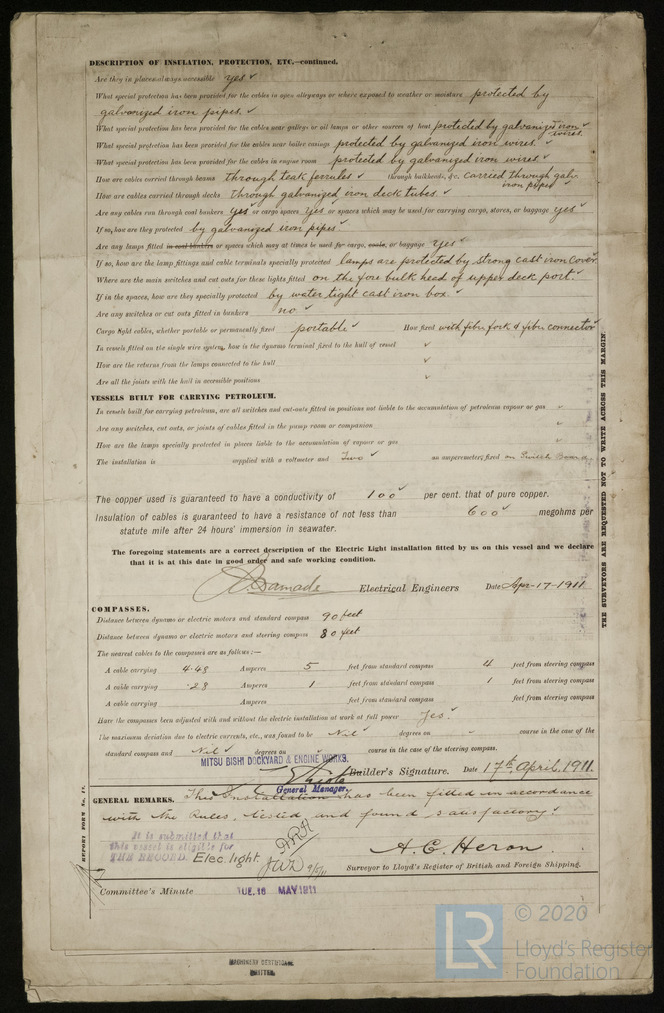 DESCRIPTION OF INSULATION, PROTECTION, ETC.—continued.
Are they in places always accessible yes ✓
What special protection has been provided for the cables in open alleyways or where exposed to weather or moisture protected by
galvanized iron pipes. ✓
What special protection has been provided for the cables near galleys or oil lamps or other sources of heat protected by galvanized iron ✓
wires.
What special protection has been provided for the cables near boiler casings protected by galvanized iron wires. ✓
What special protection has been provided for the cables in engine room protected by galvanized iron wires. ✓
How are cables carried through beams through teak ferrules ✓ through bulkheads, &c. carried through galv.
iron pipes ✓
How are cables carried through decks through galvanized iron deck tubes. ✓
Are any cables run through coal bunkers yes ✓ or cargo spaces yes ✓ or spaces which may be used for carrying cargo, stores, or baggage yes ✓
If so, how are they protected by galvanized iron pipes ✓
Are any lamps fitted in coal bunkers or spaces which may at times be used for cargo, coals, or baggage yes ✓
If so, how are the lamp fittings and cable terminals specially protected lamps are protected by strong cast iron cover.
Where are the main switches and cut outs for these lights fitted on the fore bulk head of upper deck port. ✓
If in the spaces, how are they specially protected by water tight cast iron box ✓
Are any switches or cut outs fitted in bunkers no ✓
Cargo light cables, whether portable or permanently fixed portable ✓ How fixed with fibre fork & fibre connector ✓
In vessels fitted on the single wire system, how is the dynamo terminal fixed to the hull of vessel ✓
How are the returns from the lamps connected to the hull ✓
Are all the joints with the hull in accessible positions ✓
VESSELS BUILT FOR CARRYING PETROLEUM.
In vessels built for carrying petroleum, are all switches and cut-outs fitted in positions not liable to the accumulation of petroleum vapour or gas ✓
Are any switches, cut outs, or joints of cables fitted in the pump room or companion ✓
How are the lamps specially protected in places liable to the accumulation of vapour or gas ✓
The installation is supplied with a voltmeter and Two ✓ an amperemeter, fixed on Switch Board
The copper used is guaranteed to have a conductivity of 100 ✓ per cent. that of pure copper.
Insulation of cables is guaranteed to have a resistance of not less than 600 ✓ megohms per
statute mile after 24 hours' immersion in seawater.
The foregoing statements are a correct description of the Electric Light installation fitted by us on this vessel and we declare
that it is at this date in good order and safe working condition.
Electrical Engineers Date Apr-17-1911
COMPASSES.
Distance between dynamo or electric motors and standard compass 90 feet
Distance between dynamo or electric motors and steering compass 80 feet
The nearest cables to the compasses are as follows:—
A cable carrying 4.48 Amperes 5 feet from standard compass 4 feet from steering compass
A cable carrying .28 Amperes 1 feet from standard compass 1 feet from steering compass
A cable carrying Amperes feet from standard compass feet from steering compass
Have the compasses been adjusted with and without the electric installation at work at full power Yes.
The maximum deviation due to electric currents, etc., was found to be Nil ✓ degrees on course in the case of the
standard compass and Nil ✓ degrees on ✓ course in the case of the steering compass.
MITSU BISHI DOCKYARD & ENGINE WORKS.
Builder's Signature. Date 17th April, 1911.
General Manager.
GENERAL REMARKS. This Installation has been fitted in accordance
with the Rules, tested and found satisfactory.
It is submitted that
this vessel is eligible for
THE RECORD. Elec. light.
A. E. Heron.
Surveyor to Lloyd's Register of British and Foreign Shipping.
Committee's Minute TUE. 16 MAY 1911
REPORT FORM No. 17.
THE SURVEYORS ARE REQUESTED NOT TO WRITE ACROSS THIS MARGIN.
MACHINERY CERTIFICATE
WRITTEN.
LR
© 2020
Lloyd's Register
Foundation